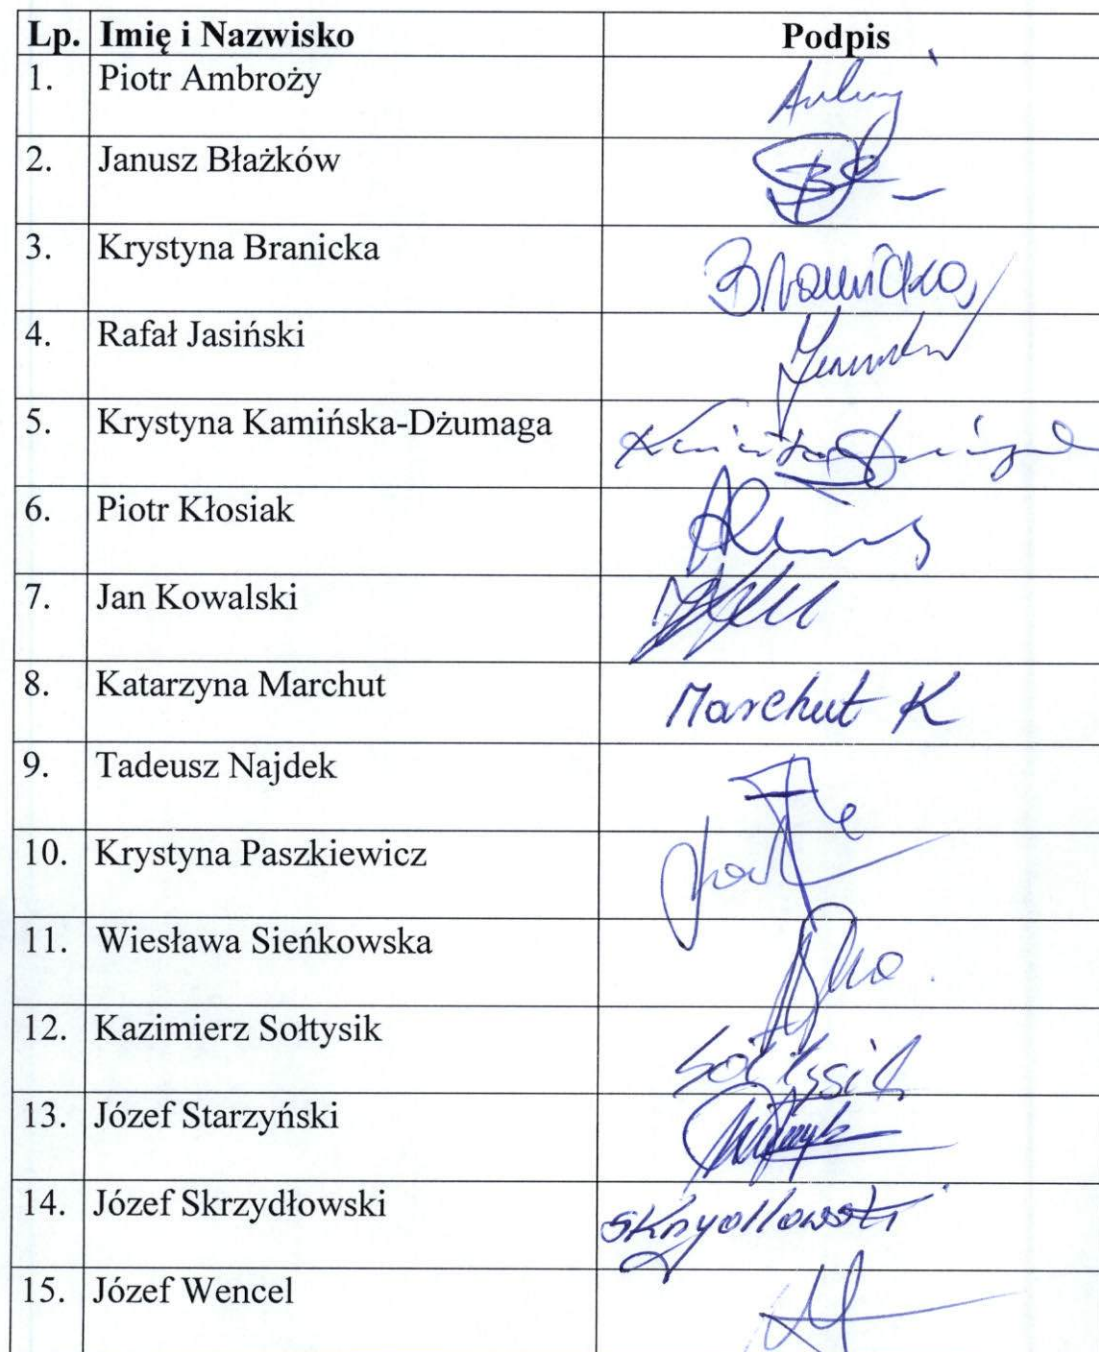 Lp. Imię i Nazwisko Podpis
1. Piotr Ambroży
2. Janusz Błażków
3. Krystyna Branicka Branicka
4. Rafał Jasiński
5. Krystyna Kamińska-Dżumaga
6. Piotr Kłosiak
7. Jan Kowalski
8. Katarzyna Marchut Marchut K
9. Tadeusz Najdek
10. Krystyna Paszkiewicz
11. Wiesława Sieńkowska
12. Kazimierz Sołtysik Sołtysik
13. Józef Starzyński
14. Józef Skrzydłowski Skrzydłowski
15. Józef Wencel